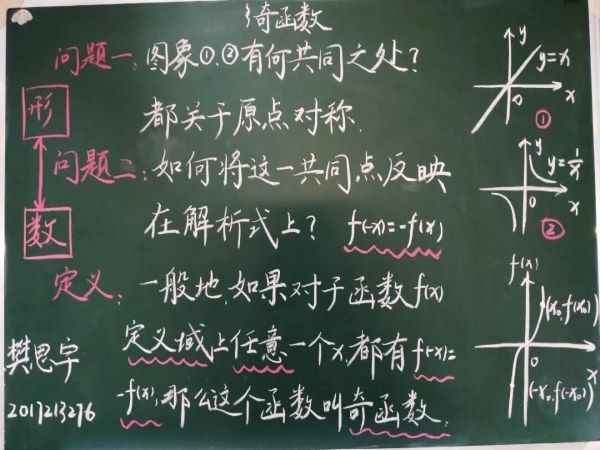 奇函数
问题一:图象①、②有何共同之处?
都关于原点对称.
形
问题二:如何将这一共同点反映
在解析式上? f(-x)=-f(x)
数
定义:一般地,如果对于函数f(x)
定义域上任意一个x,都有f(-x)=
-f(x),那么这个函数叫奇函数.
樊思宇
2017213276
y
y=x
0
x
①
y
y=1/x
0
x
②
f(x)
(x₀,f(x₀))
0
x
(-x₀,f(-x₀))